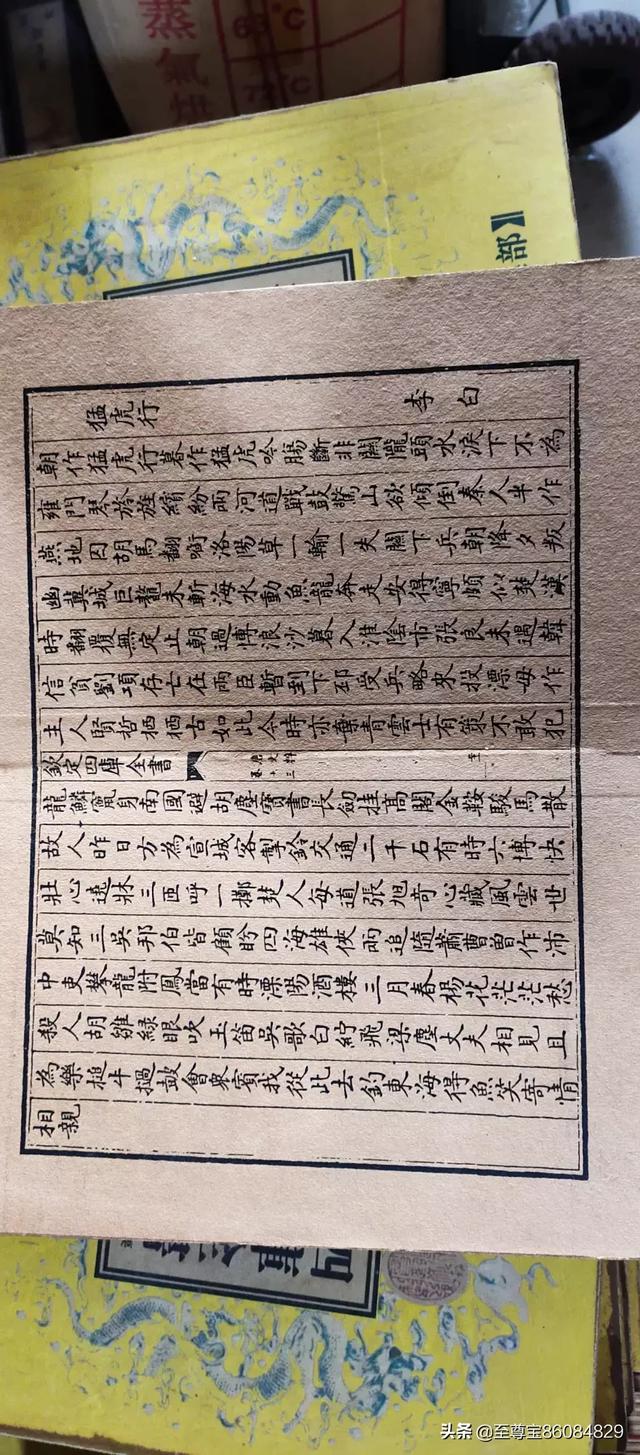 蒸氣
63℃
72℃
部】
猛虎行 李白
朝作猛虎行暮作猛虎吟腸斷非關隴頭水淚下不為
雍門琴旌繽紛兩河道戰鼓驚山欲傾倒秦人半作
燕地囚胡馬翻銜洛陽草一輸一失關下兵朝降夕叛
幽冀城巨鼇未斬海水動魚龍奔走安得寧頗似楚漢
時翻覆無定止朝過博浪沙暮入淮陰市張良未遇韓
信貧劉項存亡在兩臣暫到下邳受兵略來投漂母作
主人賢哲栖栖古如此今時亦棄青雲士有策不敢犯
欽定四庫全書 唐文粹 卷十三
龍鱗竄身南國避胡塵寶書長劍挂高閣金鞍駿馬散
故人昨日方為宣城客掣鈴交通二千石有時六博快
壯心遶牀三匝呼一擲楚人每道張旭奇心藏風雲世
莫知三吳邦伯皆顧盼四海雄俠兩追隨蕭曹曾作沛
中吏攀龍附鳳當有時溧陽酒樓三月春楊花茫茫愁
殺人胡雛綠眼吹玉笛吳歌白紵飛梁塵丈夫相見且
為樂槌牛撾鼓會衆賓我從此去釣東海得魚笑寄情
相親
四庫全
头条 @至尊宝86084829